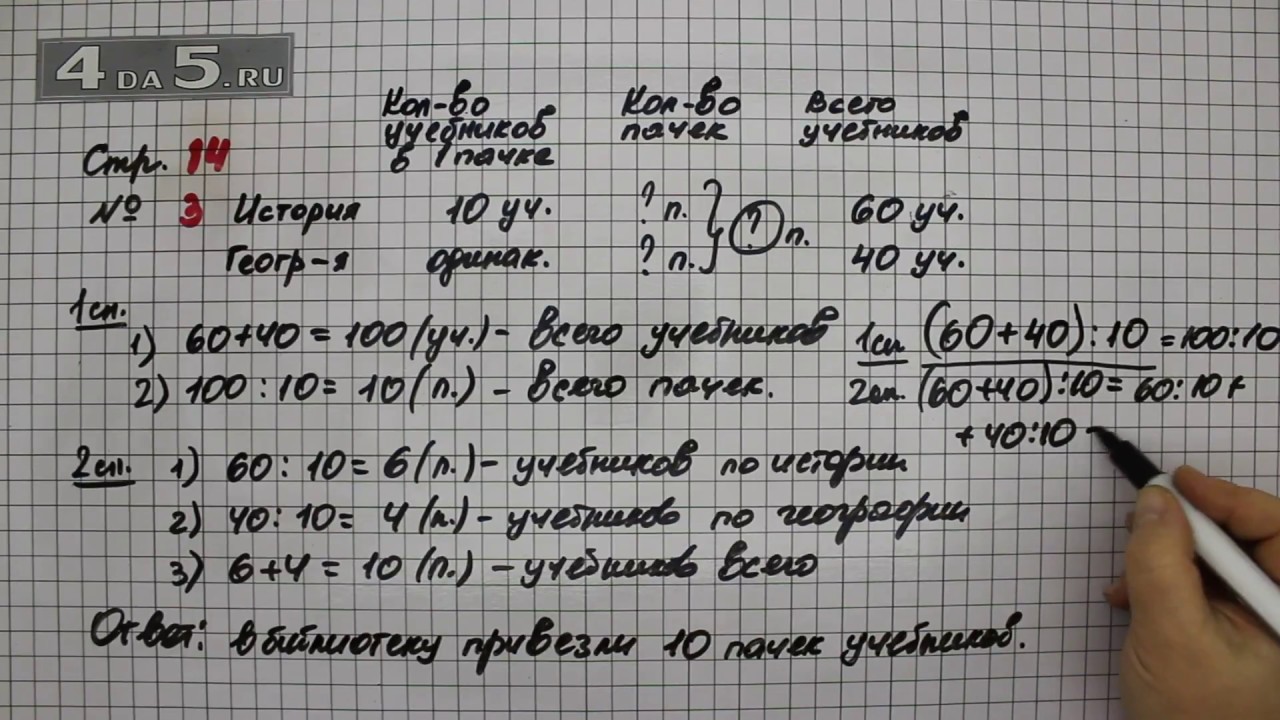 4DA5.RU
Кол-во учебников в 1 пачке
Кол-во пачек
Всего учебников
Стр. 14
№ 3 История 10 уч. ? п. } ? п. 60 уч.
Геогр-я одинак. ? п. 40 уч.
1 сп.
1) 60+40 = 100 (уч.) - всего учебников
2) 100 : 10 = 10 (п.) - всего пачек.
1 сп. (60+40) : 10 = 100:10
2 сп. (60+40) : 10 = 60 : 10 +
+ 40:10 -
2 сп. 1) 60 : 10 = 6 (п.) - учебников по истории
2) 40 : 10 = 4 (п.) - учебников по географии
3) 6+4 = 10 (п.) - учебников всего
Ответ: в библиотеку привезли 10 пачек учебников.